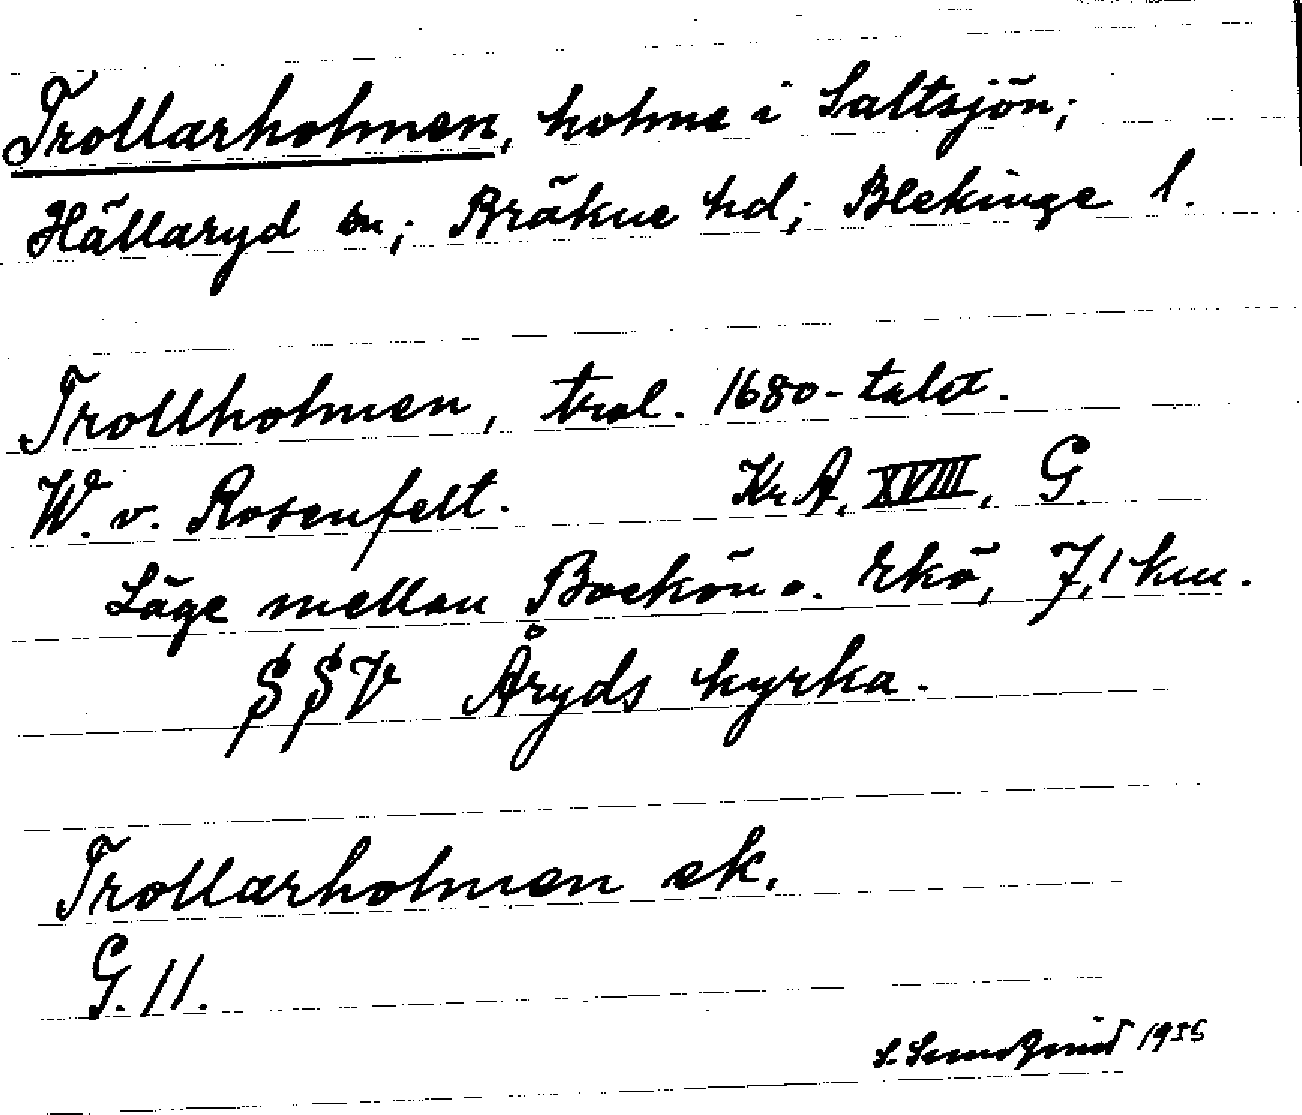 Trollarholmen, holme i Saltsjön;
Hällaryd sn; Bräkne hd; Blekinge l.
Trollholmen, trol. 1680-talet.
W. v. Rosenfelt. Kr A. XVIII, G.
Läge mellan Bockön o. Ekö, 7,1 km.
SSV Åryds kyrka.
Trollarholmen ek.
G. 11.
1955